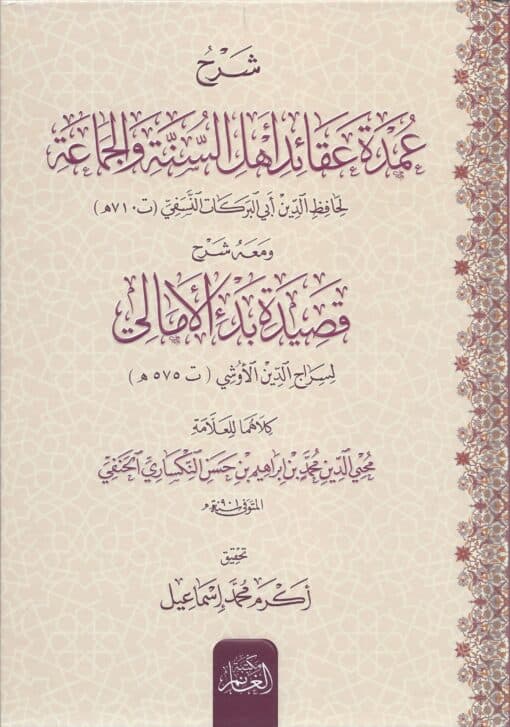 شَرْحُ
عُمْدَةِ عَقَائِدِ أَهْلِ السُّنَّةِ وَالجَمَاعَةِ
لِحَافِظِ الدِّيْنِ أَبِي البَرَكَاتِ النَّسَفِيِّ (ت٧١٠هـ)
وَمَعَهُ شَرْحُ
قَصِيْدَةِ بَدْءُ الأَمَالِي
لِسِرَاجِ الدِّيْنِ الأُوْشِي (ت ٥٧٥ هـ)
كِلَاهُمَا لِلعَلَّامَةِ
مُحْيِي الدِّيْنِ مُحَمَّدِ بْنِ إِبْرَاهِيْمَ بْنِ حَسَنِ النِّكْسَارِيِّ الحَنَفِيِّ
المُتَوَفَّى سَنَة ٩٠١هـ
تَحْقِيْق
أَكْرَم مُحَمَّد إِسْمَاعِيْل
مكتبة
الغانم